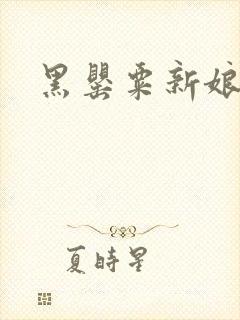 黑罂粟新娘
夏時星